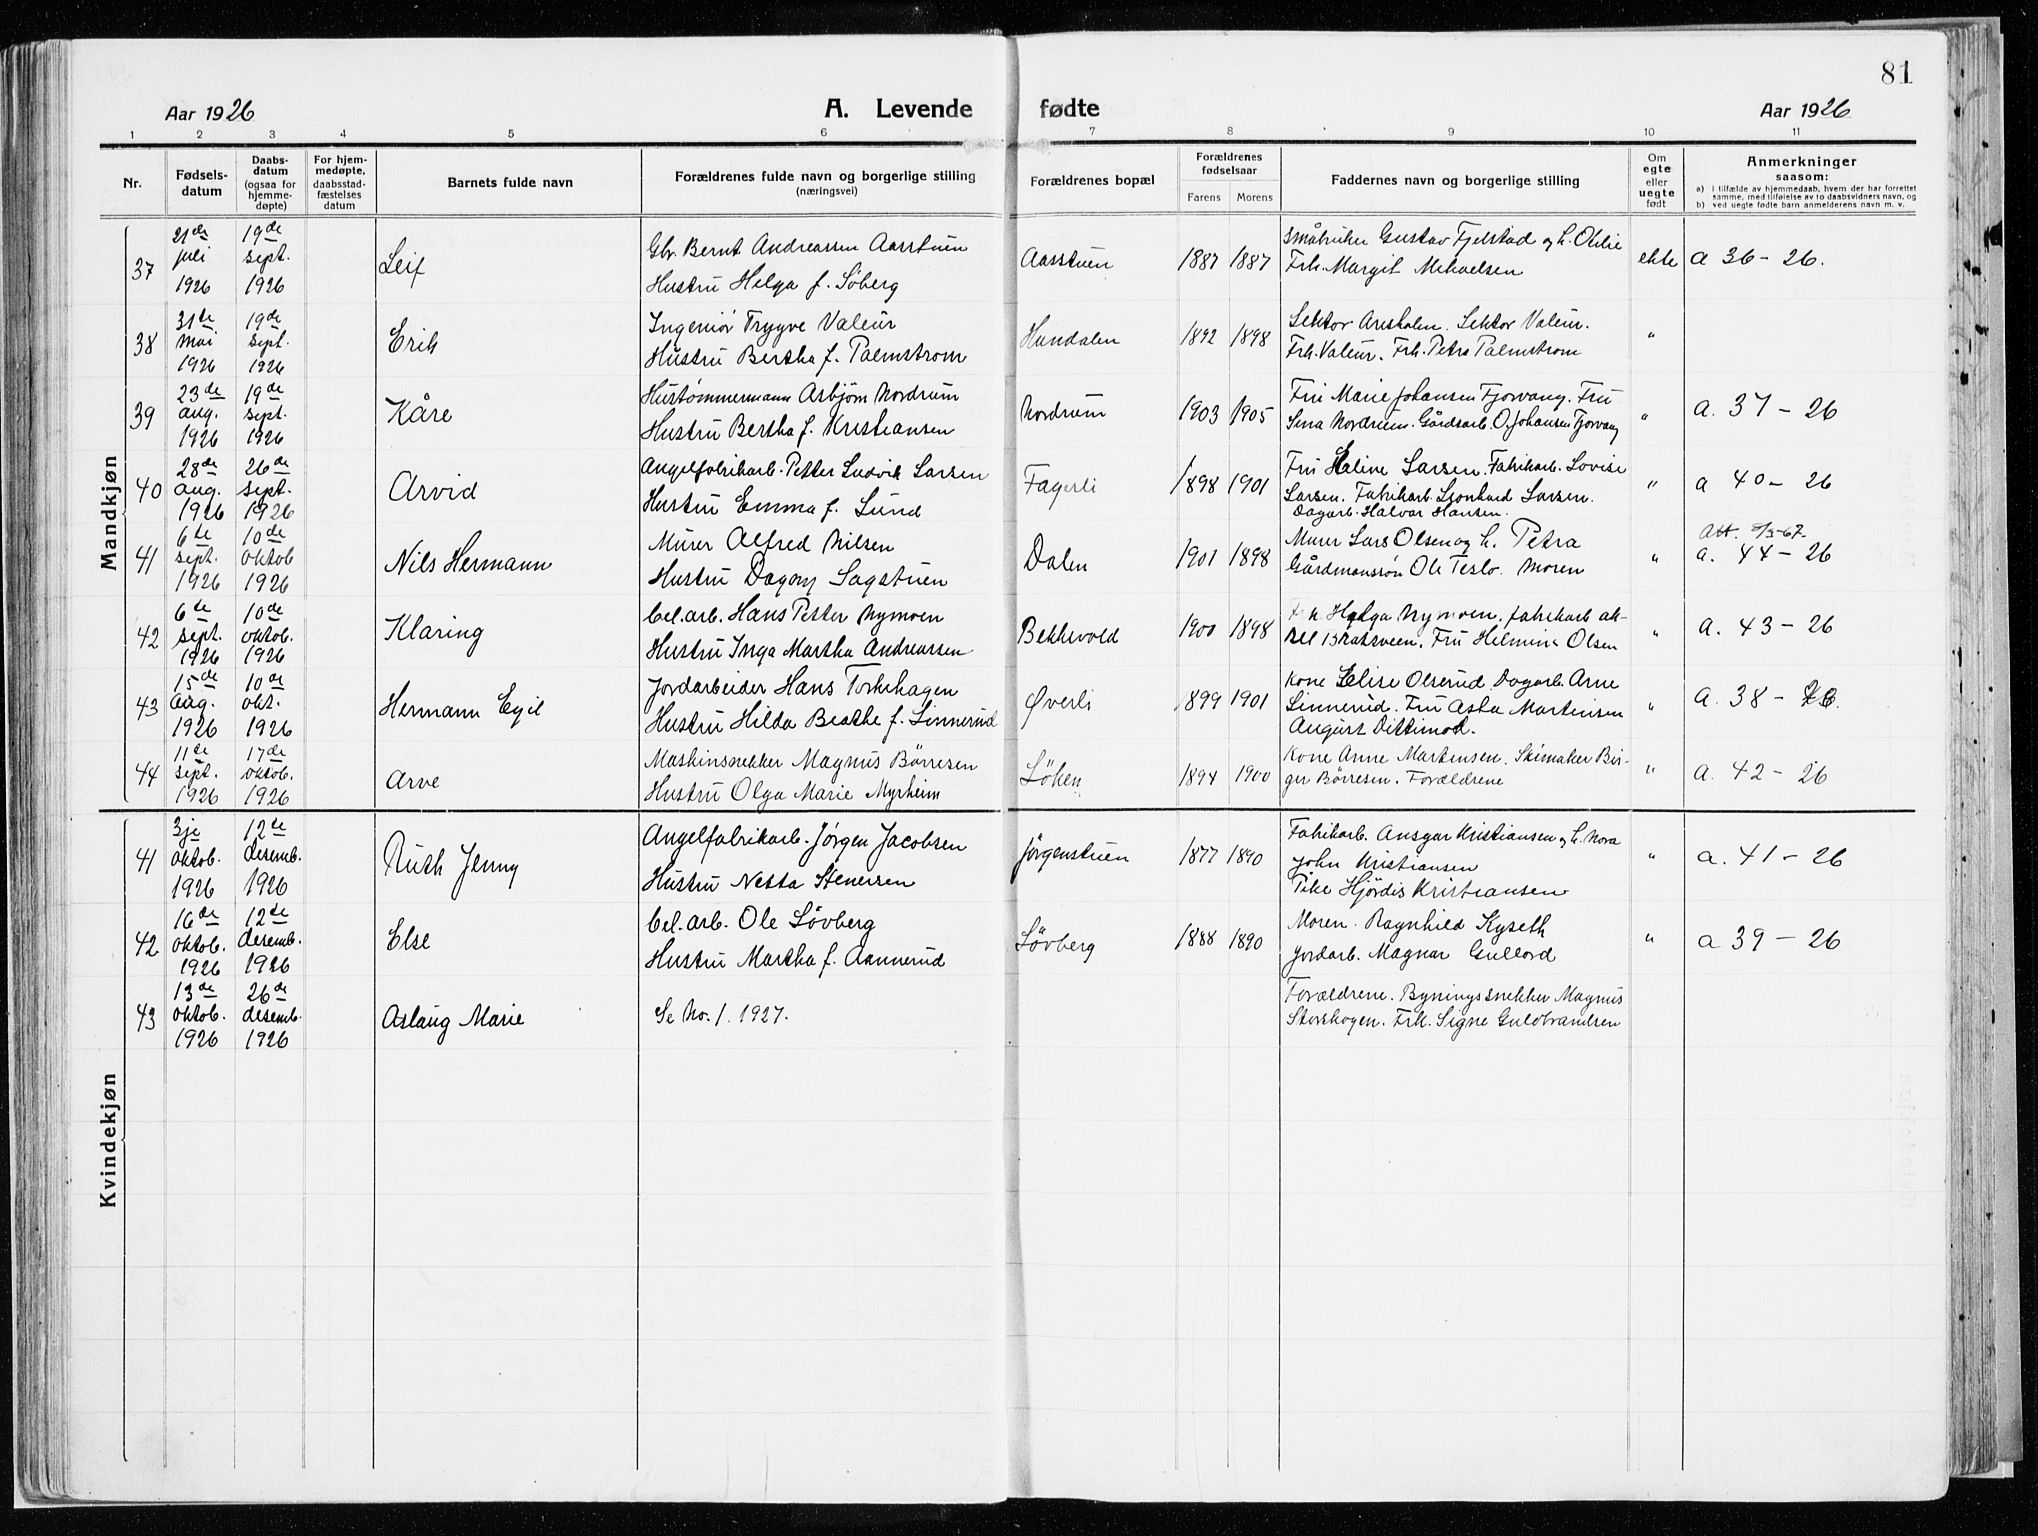 81
Aar 1926 A. Levende fødte Aar 1926
1 2 3 4 5 6 7 8 9 10 11
Nr. Fødsels-datum Daabs-datum (ogsaa for hjemme-døpte) For hjem-medøpte, daabsstad-fæstelses datum Barnets fulde navn Forældrenes fulde navn og borgerlige stilling (næringsvei) Forældrenes bopæl Forældrenes fødselsaar Farens Morens Faddernes navn og borgerlige stilling Om egte eller uegte født Anmerkninger saasom:
a) i tilfælde av hjemmedaab, hvem der har forrettet samme, med tilføielse av to daabsvidners navn, og
b) ved uegte fødte barn anmelderens navn m. v.
Mandkjøn
37 21de juli 1926 19de sept. 1926 Leif Gbr. Bernt Andreassen Aasstuen
Hustru Helga f. Söberg
Aasstuen 1887 1887 Småbruker Gustav Fjelstad og h. Otilie
Frk. Margit Mikaelsen
ekte a 36 - 26.
38 31te mai 1926 19de sept. 1926 Erik Ingeniör Trygve Valeur
Hustru Bertha f. Palmstrom
Hundalen 1892 1898 Lektor Aresholen. Lektor Valeur.
Frk. Valeur. Frk. Petra Palmstrom
"
39 23de aug. 1926 19de sept. 1926 Kåre Hustømmermann Asbjørn Nordrum
Hustru Bertha f. Kristiansen
Nordrum 1903 1905 Fru Marie Johansen Fjorvang. Fru
Sina Nordrum. Gårdsarb. O. Johansen Fjorvang
" a. 37 - 26
40 28de aug. 1926 26de sept. 1926 Arvid Angelfabrikarb. Petter Ludvik Larsen
Hustru Emma f. Lund
Fagerli 1898 1901 Fru Haline Larsen. Fabrikarb. Lovise
Larsen. Fabrikarb. Leonhard Larsen.
Dagarb. Halvor Hansen.
" a 40 - 26
41 6te sept. 1926 10de oktob 1926 Nils Hermann Murer Alfred Nilsen
Hustru Dagny Sagstuen
Dalen 1901 1898 Murer Lars Olsen og h. Petra
Gårdmannsrøn Ole Teslo. Moren
" Att. 5-67.
a. 44 - 26
42 6te sept. 1926 10de oktob. 1926 Klaring Cel.arb. Hans Petter Nymoen
Hustru Inga Martha Andreassen
Bekkevold 1900 1898 Helga Nymoen, fabrikarb ak-
sel Bratsveen, Fru Helmina Olsen
" a. 43 - 26
43 15de aug. 1926 10de okt. 1926 Hermann Egil Jordarbeider Hans Torkehagen
Hustru Hilda Beathe f. Linnerud
Øverli 1899 1901 Kone Elise Olserud. Dagarb. Arne
Linnerud. Fru Asta Martinsen
August Dittimot.
" a. 38 - 26.
44 11te sept. 1926 17de oktob. 1926 Arve Maskinsnekker Magnus Börresen
Hustru Olga Marie Myrheim
Löken 1894 1900 Kone Anne Martinsen. Skimaker Bir-
ger Börresen. Forældrene
" a. 42 - 26
Kvindekjøn
41 3je oktob. 1926 12te desemb. 1926 Ruth Jenny Angelfabrikarb. Jørgen Jacobsen
Hustru Netta Stenersen
Jørgenstuen 1877 1890 Fabrikarb. Ansgar Kristiansen og h. Nora
John Kristiansen
Pike Hjördis Kristiansen
" a. 41 - 26
42 16de oktob. 1926 12te desemb. 1926 Else Cel.arb. Ole Lövberg
Hustru Martha f. Aannerud
Lövberg 1888 1890 Moren. Ragnhild Kyseth
Jordarb. Magnar Gullord
" a 39 - 26
43 13de oktob. 1926 26de desemb. 1926 Aslaug Marie Se No. 1. 1927.
Forældrene. Bygningssnekker Magnus
Storshagen. Frk. Signe Guldbrandsen